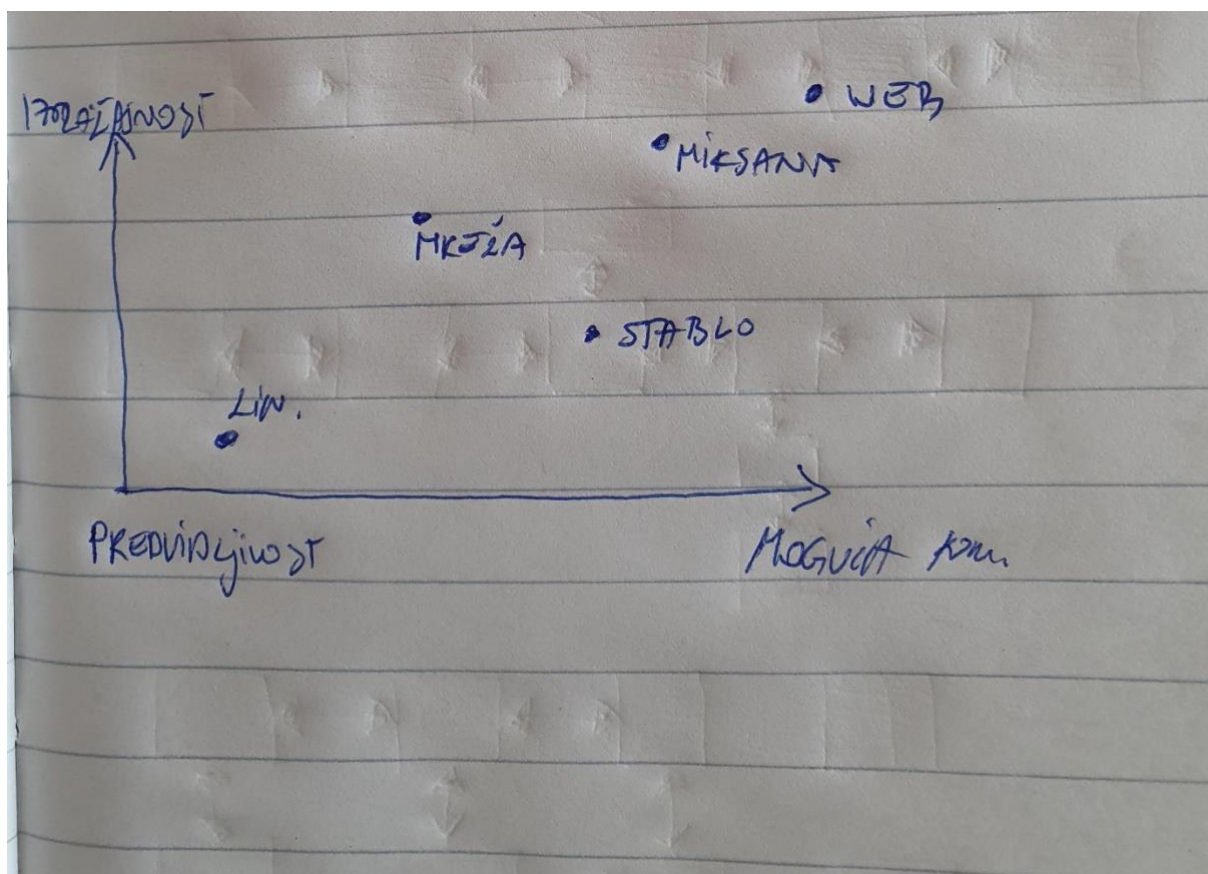 IZRAŽAJNOST
WEB
MIKSANA
MREŽA
STABLO
LIN.
PREDVIDLJIVOST
MOGUĆA